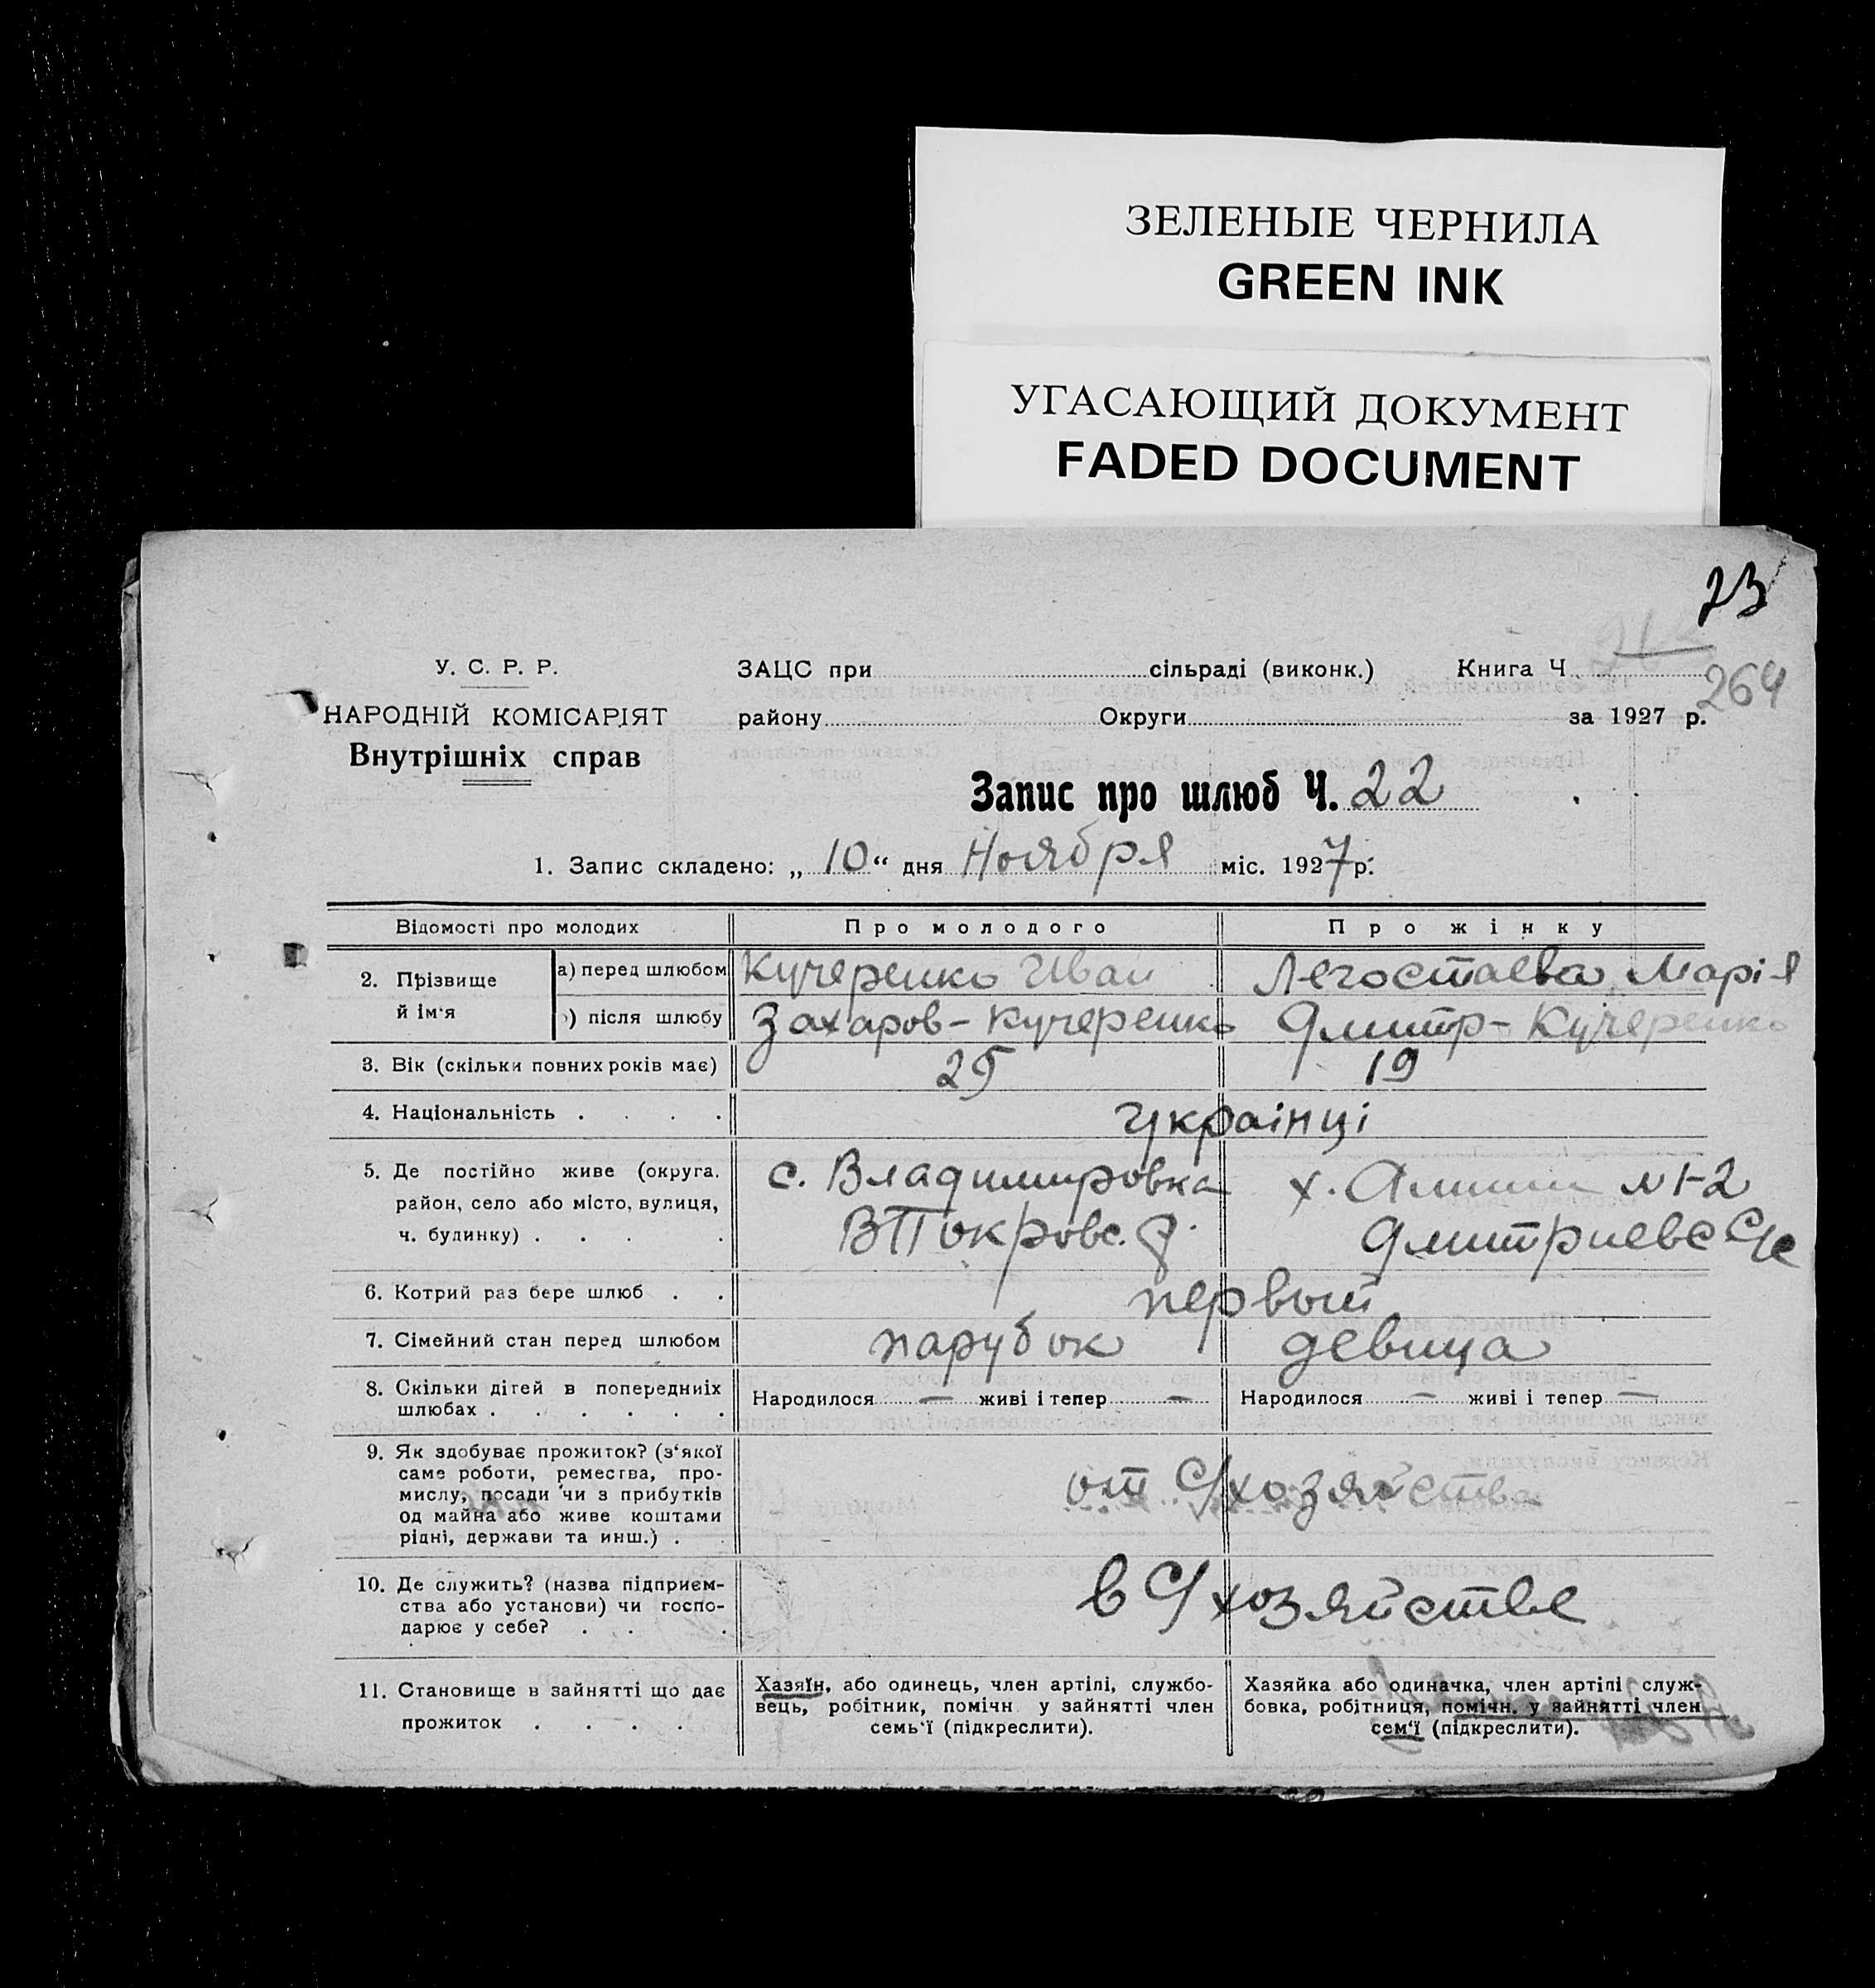 ЗЕЛЕНЫЕ ЧЕРНИЛА
GREEN INK
УГАСАЮЩИЙ ДОКУМЕНТ
FADED DOCUMENT
23
264
У. С. Р. Р.
НАРОДНІЙ КОМІСАРІЯТ
Внутрішніх справ
ЗАЦС при сільраді (виконк.) Книга Ч
району Округи за 1927 р.
Запис про шлюб Ч. 22
1. Запис складено: „ 10 “ дня Ноября міс. 1927 р.
Відомості про молодих
Про молодого
Про жінку
2. Прізвище й ім'я
а) перед шлюбом
Кучеренко Иван
Легостаева Марія
) після шлюбу
Захаров- Кучеренко
Дмитр- Кучеренко
3. Вік (скільки повних років має)
25
19
4. Національність . . . .
Українці
5. Де постійно живе (округа.
район, село або місто, вулиця,
ч. будинку) . . .
с. Владимировка
ВПокровс. р.
х. №1-2
Дмитриевс
6. Котрий раз бере шлюб . .
первый
7. Сімейний стан перед шлюбом
парубок
девица
8. Скільки дітей в попередниіх
шлюбах . . . . . .
Народилося — живі і тепер —
Народилося — живі і тепер —
9. Як здобуває прожиток? (з'якої
саме роботи, ремества, про-
мислу, посади чи з прибутків
од майна або живе коштами
рідні, держави та инш.) .
от С/хозяйства
10. Де служить? (назва підприєм-
ства або установи) чи госпо-
дарює у себе? . . .
в С/хозяйстве
11. Становище в зайнятті що дає
прожиток . . . .
Хазяїн, або одинець, член артілі, службо-
вець, робітник, помічн у зайнятті член
семь'ї (підкреслити).
Хазяйка або одиначка, член артілі служ-
бовка, робітниця, помічн. у зайнятті член
сем'ї (підкреслити).